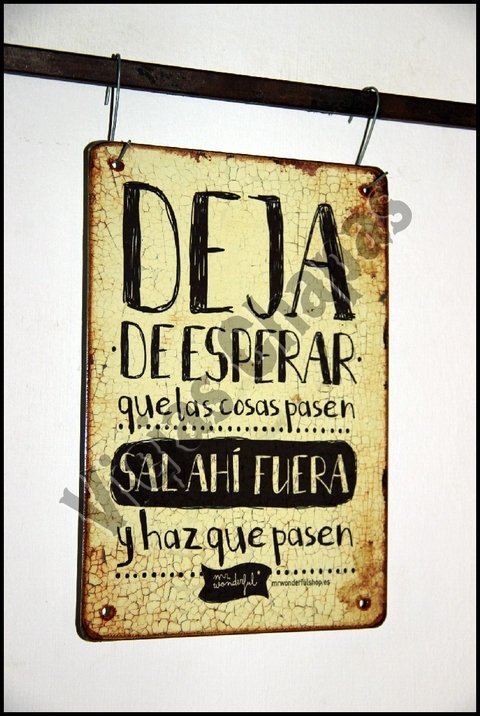 DEJA
DE ESPERAR
que las cosas pasen
SAL AHÍ FUERA
y haz que pasen
mr. wonderful*
mrwonderfulshop.es